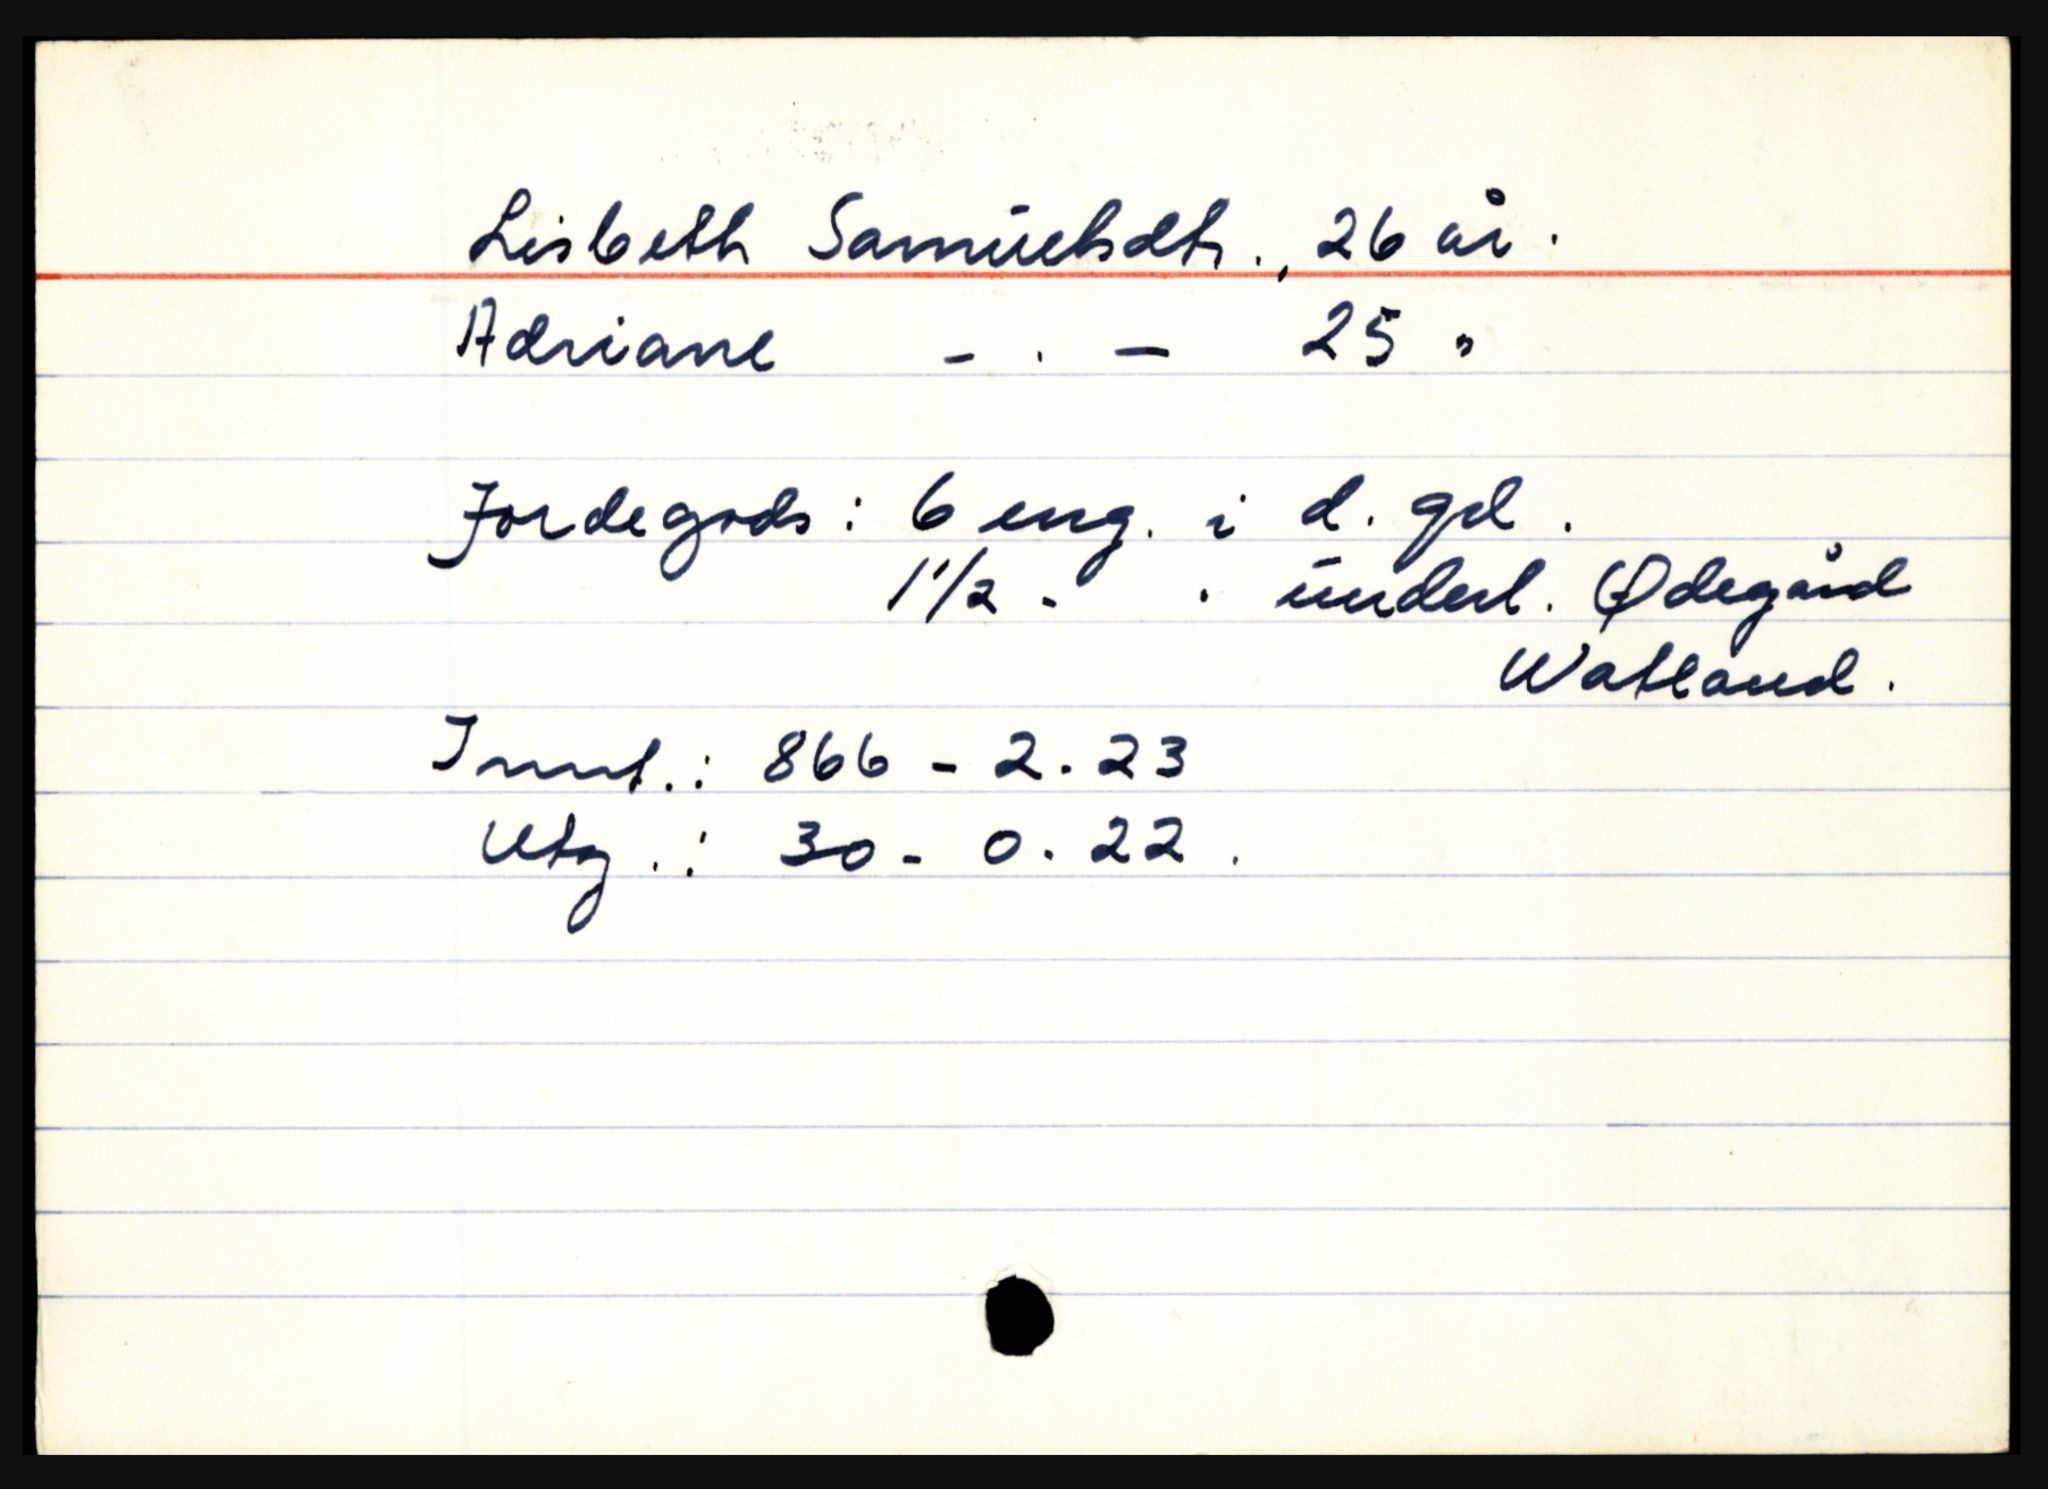 Lisbeth Samuelsdtr., 26 år.
Adriane - . - 25 "
Jordegods: 6 eng. i d. gd.
1 1/2 - . underl. Ødegård
Watland.
Innt.: 866 - 2 - 23
Utg.: 30 - 0 - 22.